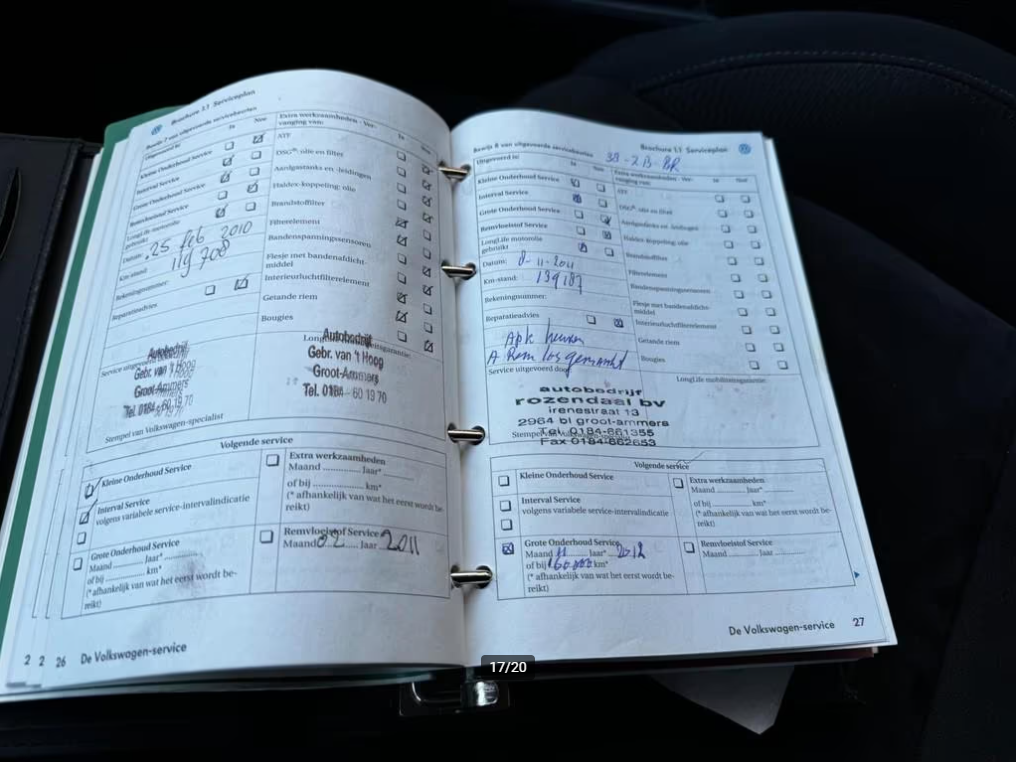 Brochure 1.1 Serviceplan
Bewijs 7 van uitgevoerde servicebeurten
Uitgevoerd is:
Ja
Nee
Kleine Onderhoud Service
Interval Service
Grote Onderhoud Service
Remvloeistof Service
LongLife motorolie gebruikt
Datum: 25 feb 2010
Km-stand: 119 708
Rekeningnummer:
Reparatieadvies
Extra werkzaamheden - Ver-
vanging van:
Ja
Nee
ATF
DSG®: olie en filter
Aardgastanks en -leidingen
Haldex-koppeling: olie
Brandstoffilter
Filterelement
Bandenspanningssensoren
Flesje met bandenafdicht-
middel
Interieurluchtfilterelement
Getande riem
Bougies
Autobedrijf
Gebr. van 't Hoog
Groot-Ammers
Tel. 0184 - 60 19 70
Autobedrijf
Gebr. van 't Hoog
Groot-Ammers
Tel. 0184 - 60 19 70
Stempel van Volkswagen-specialist
Volgende service
Kleine Onderhoud Service
Interval Service
volgens variabele service-intervalindicatie
Grote Onderhoud Service
Maand ............ Jaar* ............
of bij ............ km*
(* afhankelijk van wat het eerst wordt be-
reikt)
Extra werkzaamheden
Maand ............ Jaar* ............
of bij ............ km*
(* afhankelijk van wat het eerst wordt be-
reikt)
Remvloeistof Service
Maand 02 Jaar 2011
2 2 26 De Volkswagen-service
Bewijs 8 van uitgevoerde servicebeurten
Brochure 1.1 Serviceplan
Uitgevoerd is:
Ja
Nee
Kleine Onderhoud Service
Interval Service
Grote Onderhoud Service
Remvloeistof Service
LongLife motorolie
gebruikt
Datum: 8-11-2011
Km-stand: 139187
Rekeningnummer:
Reparatieadvies
Apk keuren
A Rem losgemaakt
Service uitgevoerd door
Extra werkzaamheden - Ver-
vanging van:
Ja
Nee
ATF
DSG®: olie en filter
Aardgastanks en -leidingen
Haldex-koppeling: olie
Brandstoffilter
Filterelement
Bandenspanningssensoren
Flesje met bandenafdicht-
middel
Interieurluchtfilterelement
Getande riem
Bougies
LongLife mobiliteitsgarantie:
autobedrijf
rozendaal bv
irenestraat 13
2964 bl groot-ammers
Tel. 0184-661355
Fax 0184-662653
Volgende service
Kleine Onderhoud Service
Interval Service
volgens variabele service-intervalindicatie
Grote Onderhoud Service
Maand 11 Jaar* 2012
of bij 160.000 km*
(* afhankelijk van wat het eerst wordt be-
reikt)
Extra werkzaamheden
Maand ............ Jaar* ............
of bij ............ km*
(* afhankelijk van wat het eerst wordt be-
reikt)
Remvloeistof Service
Maand ............ Jaar ............
De Volkswagen-service 27
17/20